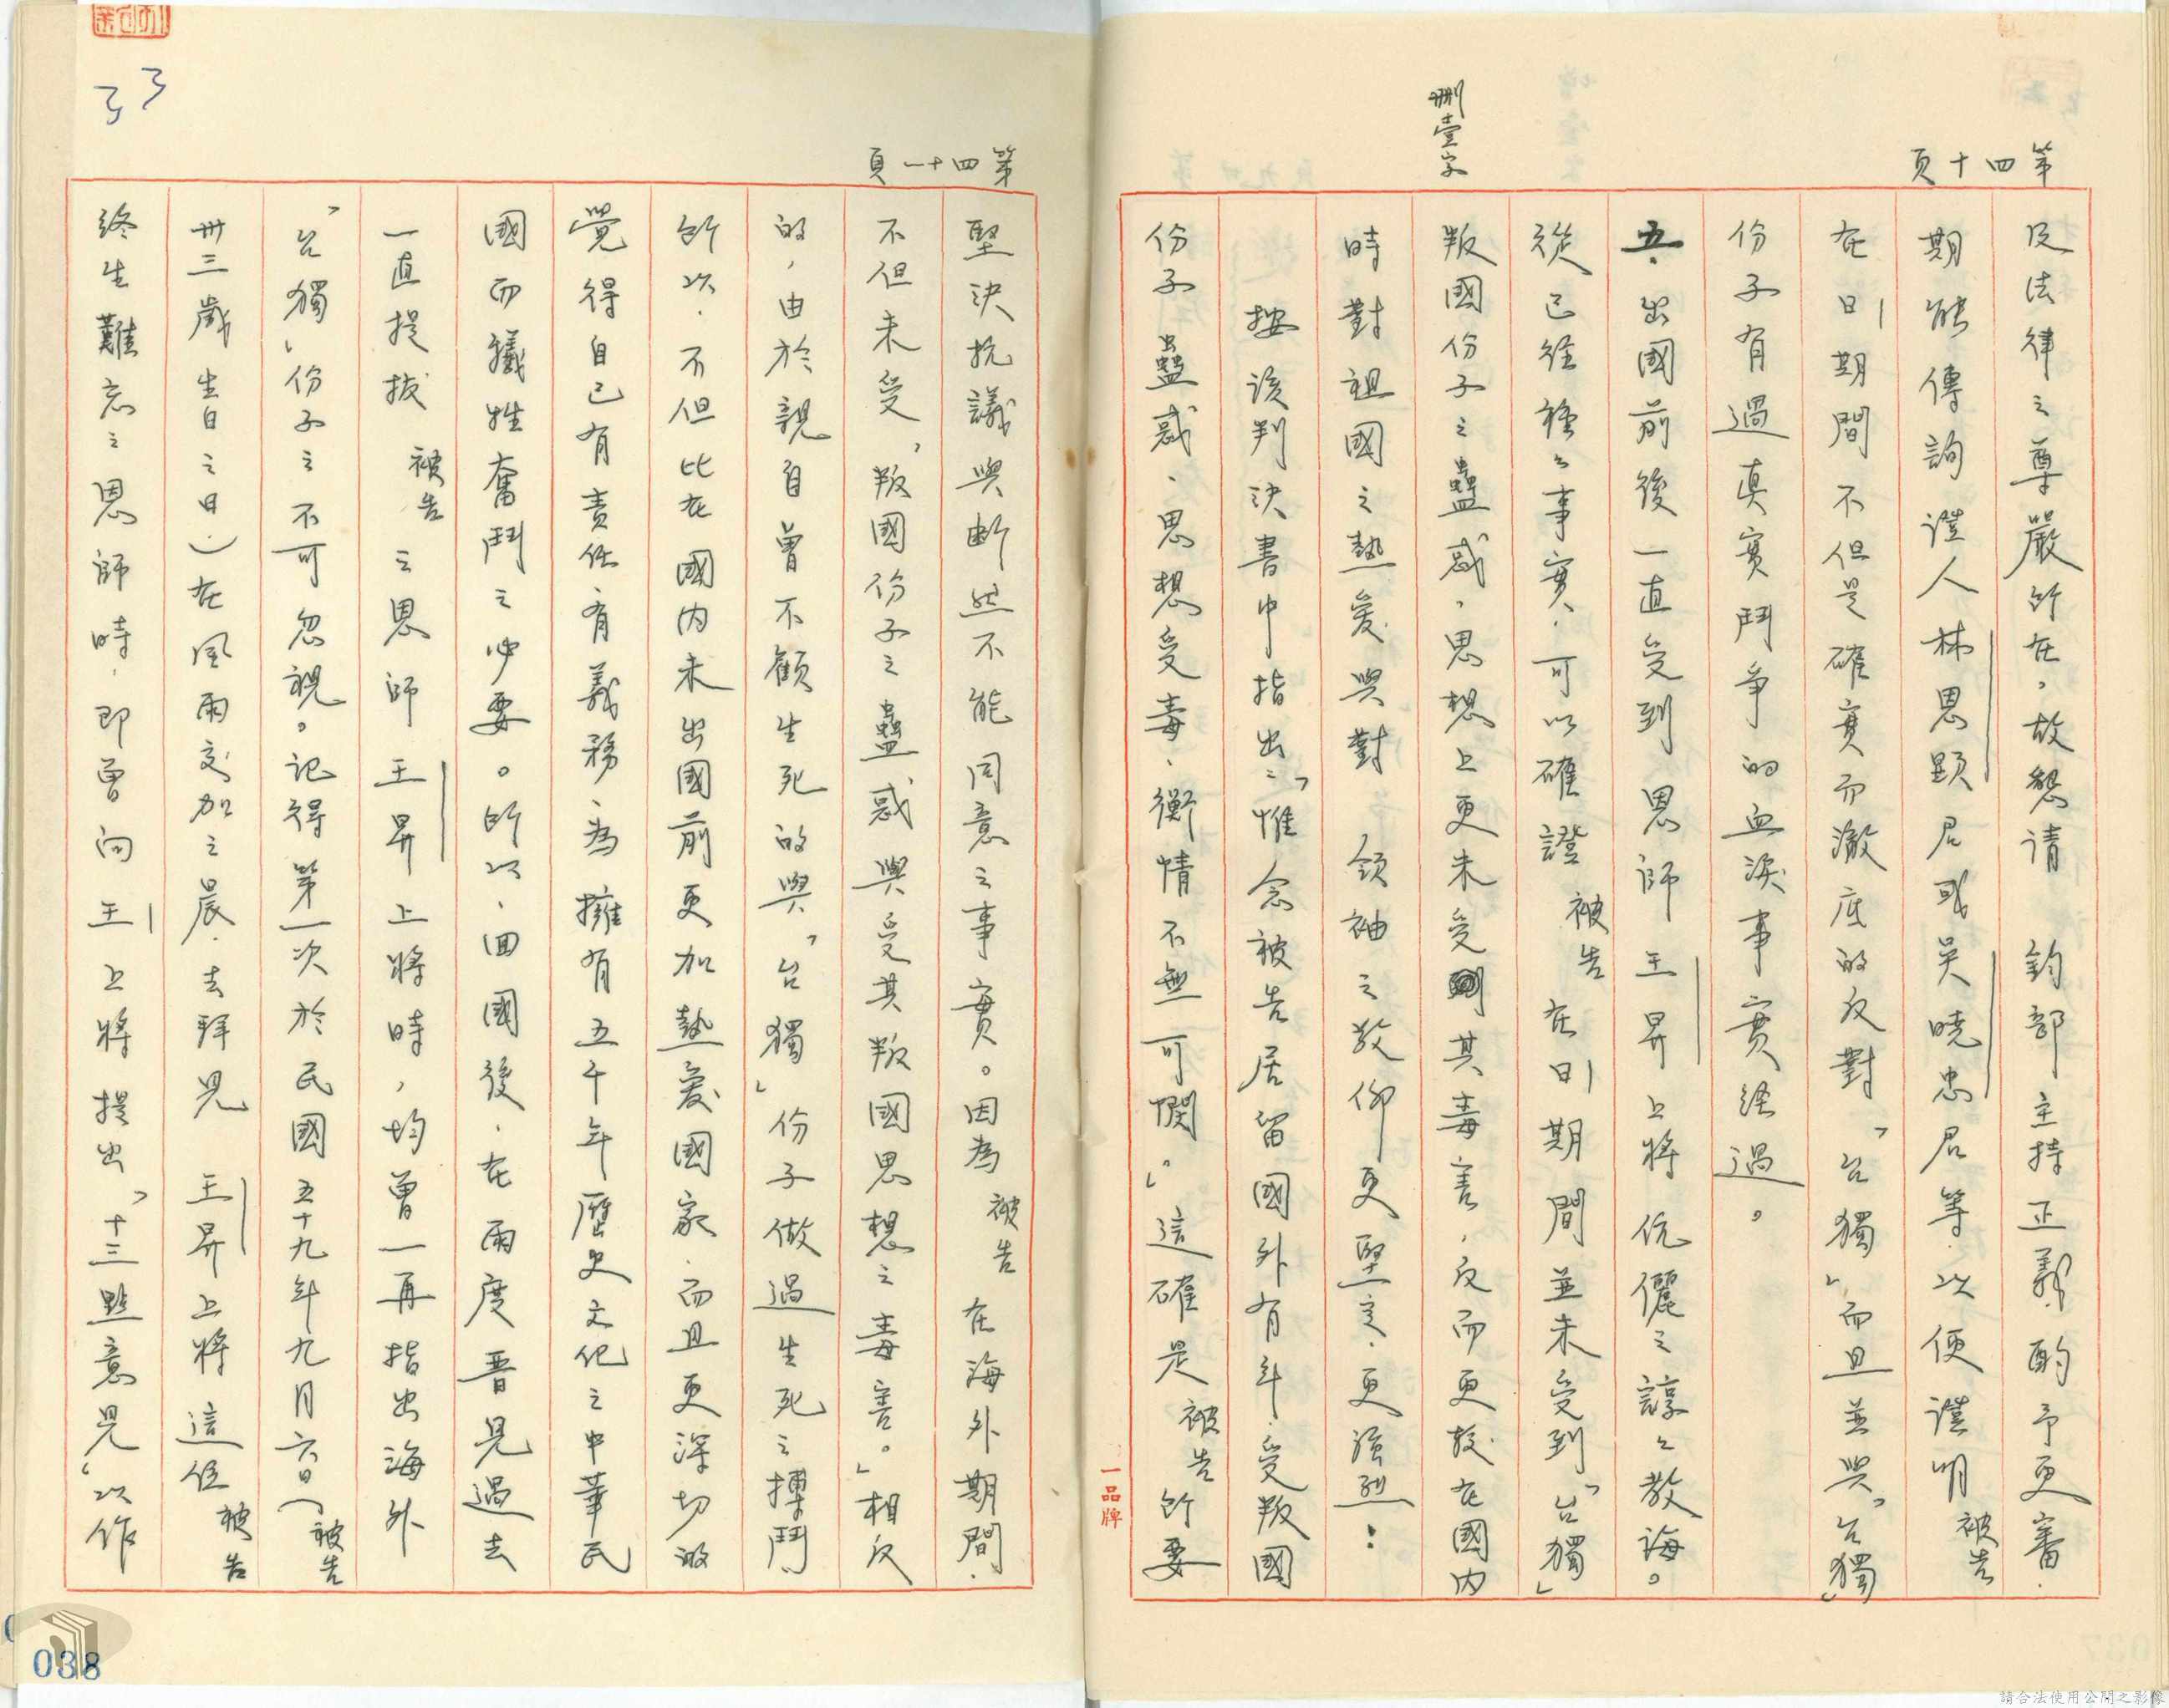 第四十頁
刪壹字
及法律之尊嚴所在。故懇請　鈞部主持正義.酌予更審.
期能傳詢證人林思顯君或吳曉忠君等.以便證明被告
在日期間不但是確實而澈底的反對「台獨」而且並與「台獨」
份子有過真實鬥爭的血淚事實経過。
五.出國前後一直受到恩師王昇上將伉儷之諄々教誨。
從已往種々事實.可以確證被告在日期間並未受到「台獨」
叛國份子之蠱惑,思想上更未受其毒害,反而更較在國內
時對祖國之熱爱與對　領袖之敬仰更堅定.更強烈：
按該判決書中指出:「惟念被告居留國外有年.受叛國
份子蠱惑、思想受毒、衡情不無可憫。」這確是被告所要
一品牌
第四十一頁
堅決抗議與斷然不能同意之事實。因為被告在海外期間.
不但未受「叛國份子之蠱惑與受其叛國思想之毒害。」相反
的,由於親自曾不顧生死的與「台獨」份子做過生死之搏鬥.
所以.不但比在國內未出國前更加熱爱國家.而且更深切的
覺得自己有責任、有義務、為擁有五千年歷史文化之中華民
國而犧牲奮鬥之必要。所以、回國後.在兩度晋見過去
一直提拔被告之恩師王昇上將時,均曾一再指出海外
「台獨」份子之不可忽視。記得第一次於民國五十九年九月六日(被告
卅三歲生日之日.)在風雨交加之晨.去拜見　王昇上將這位被告
終生難忘之恩師時.即曾向王上將提出「十三點意見」以作
33
038
請合法使用公開之影像